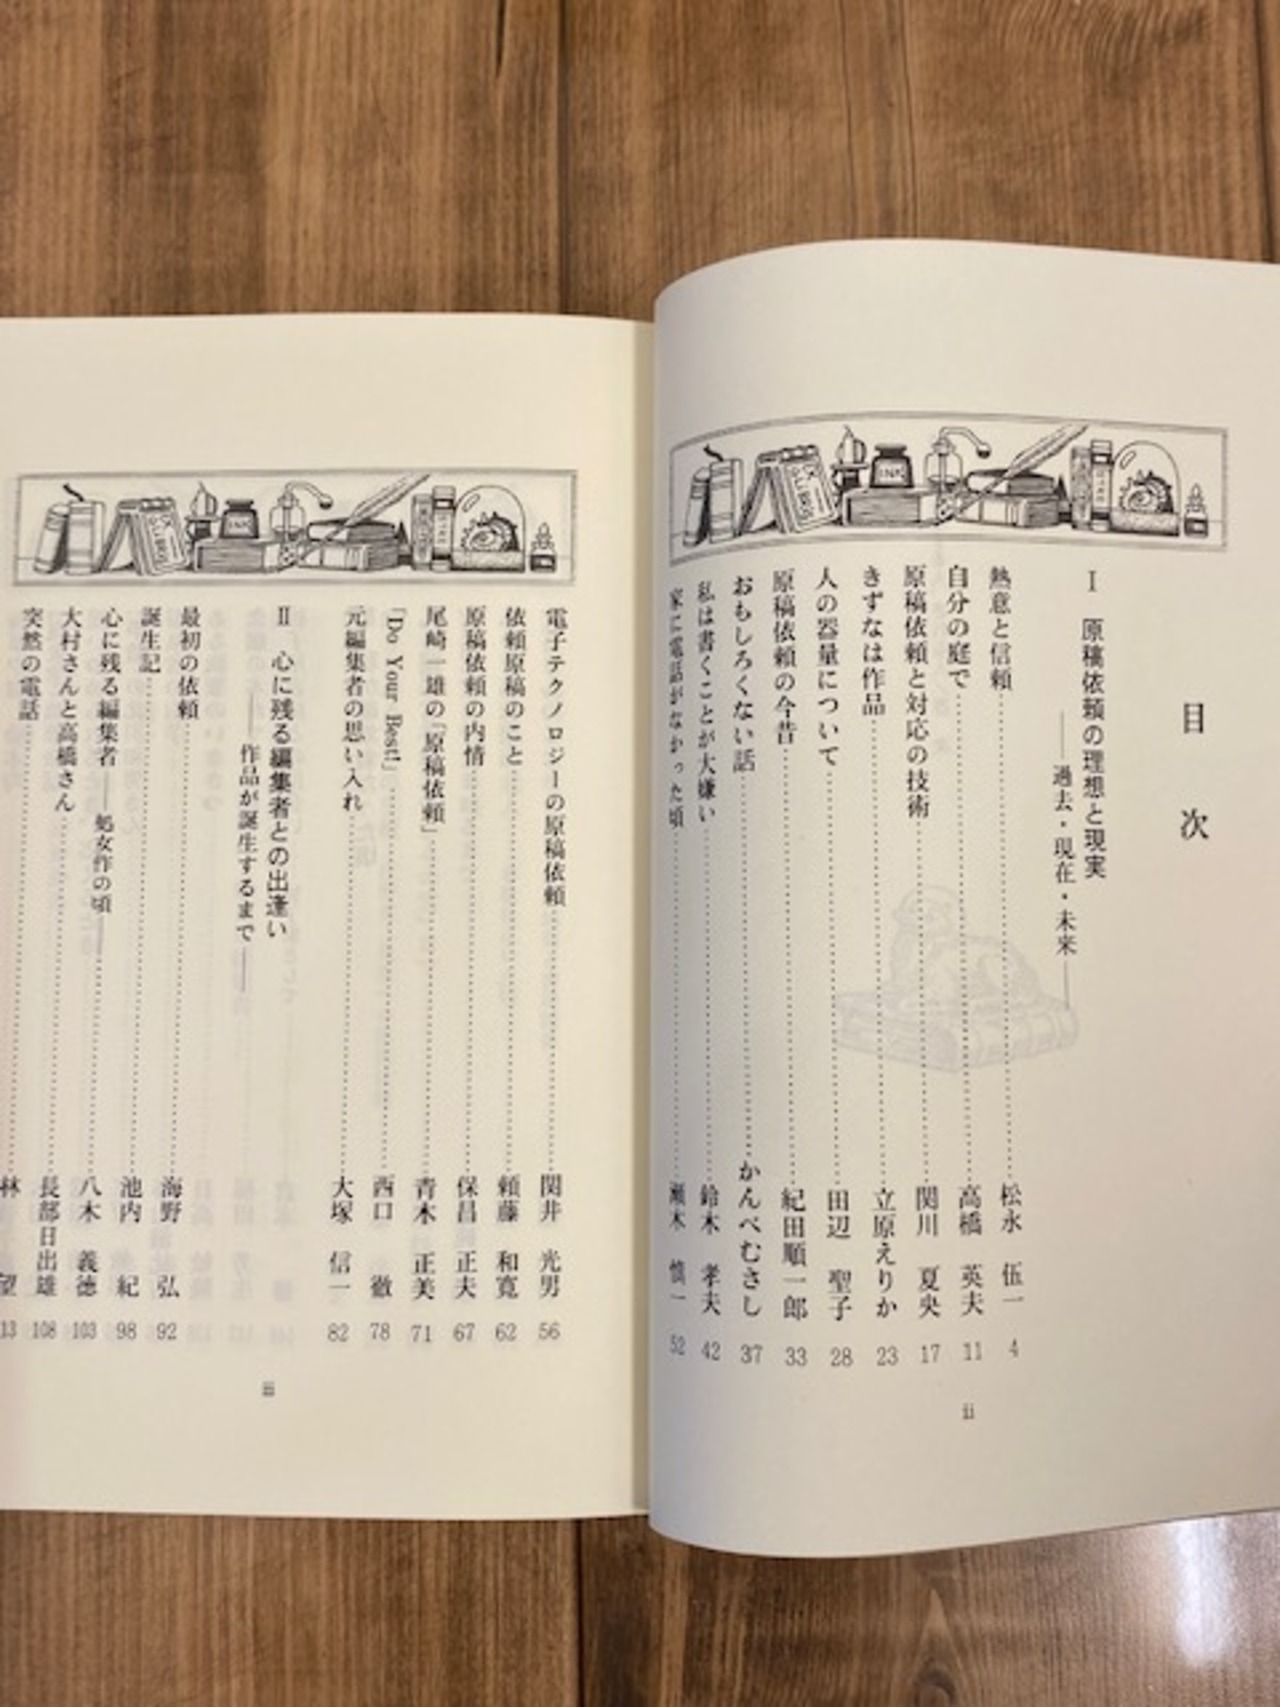 目次
Ⅰ 原稿依頼の理想と現実
――過去・現在・未来――
熱意と信頼……松永 伍一 4
自分の庭で……高橋 英夫 11
原稿依頼と対応の技術……関川 夏央 17
きずなは作品……立原えりか 23
人の器量について……田辺 聖子 28
原稿依頼の今昔……紀田順一郎 33
おもしろくない話……かんべむさし 37
私は書くことが大嫌い……鈴木 孝夫 42
家に電話がなかった頃……瀬木 慎一 52
ii
電子テクノロジーの原稿依頼……関井 光男 56
依頼原稿のこと……頼藤 和寛 62
原稿依頼の内情……保昌 正夫 67
尾崎一雄の「原稿依頼」……青木 正美 71
「Do Your Best!」……西口 徹 78
元編集者の思い入れ……大塚 信一 82
Ⅱ 心に残る編集者との出逢い
――作品が誕生するまで――
最初の依頼……海野 弘 92
誕生記……池内 紀 98
心に残る編集者――処女作の頃――……八木 義徳 103
大村さんと高橋さん……長部日出雄 108
突然の電話……林 望 13
iii
INK
INK